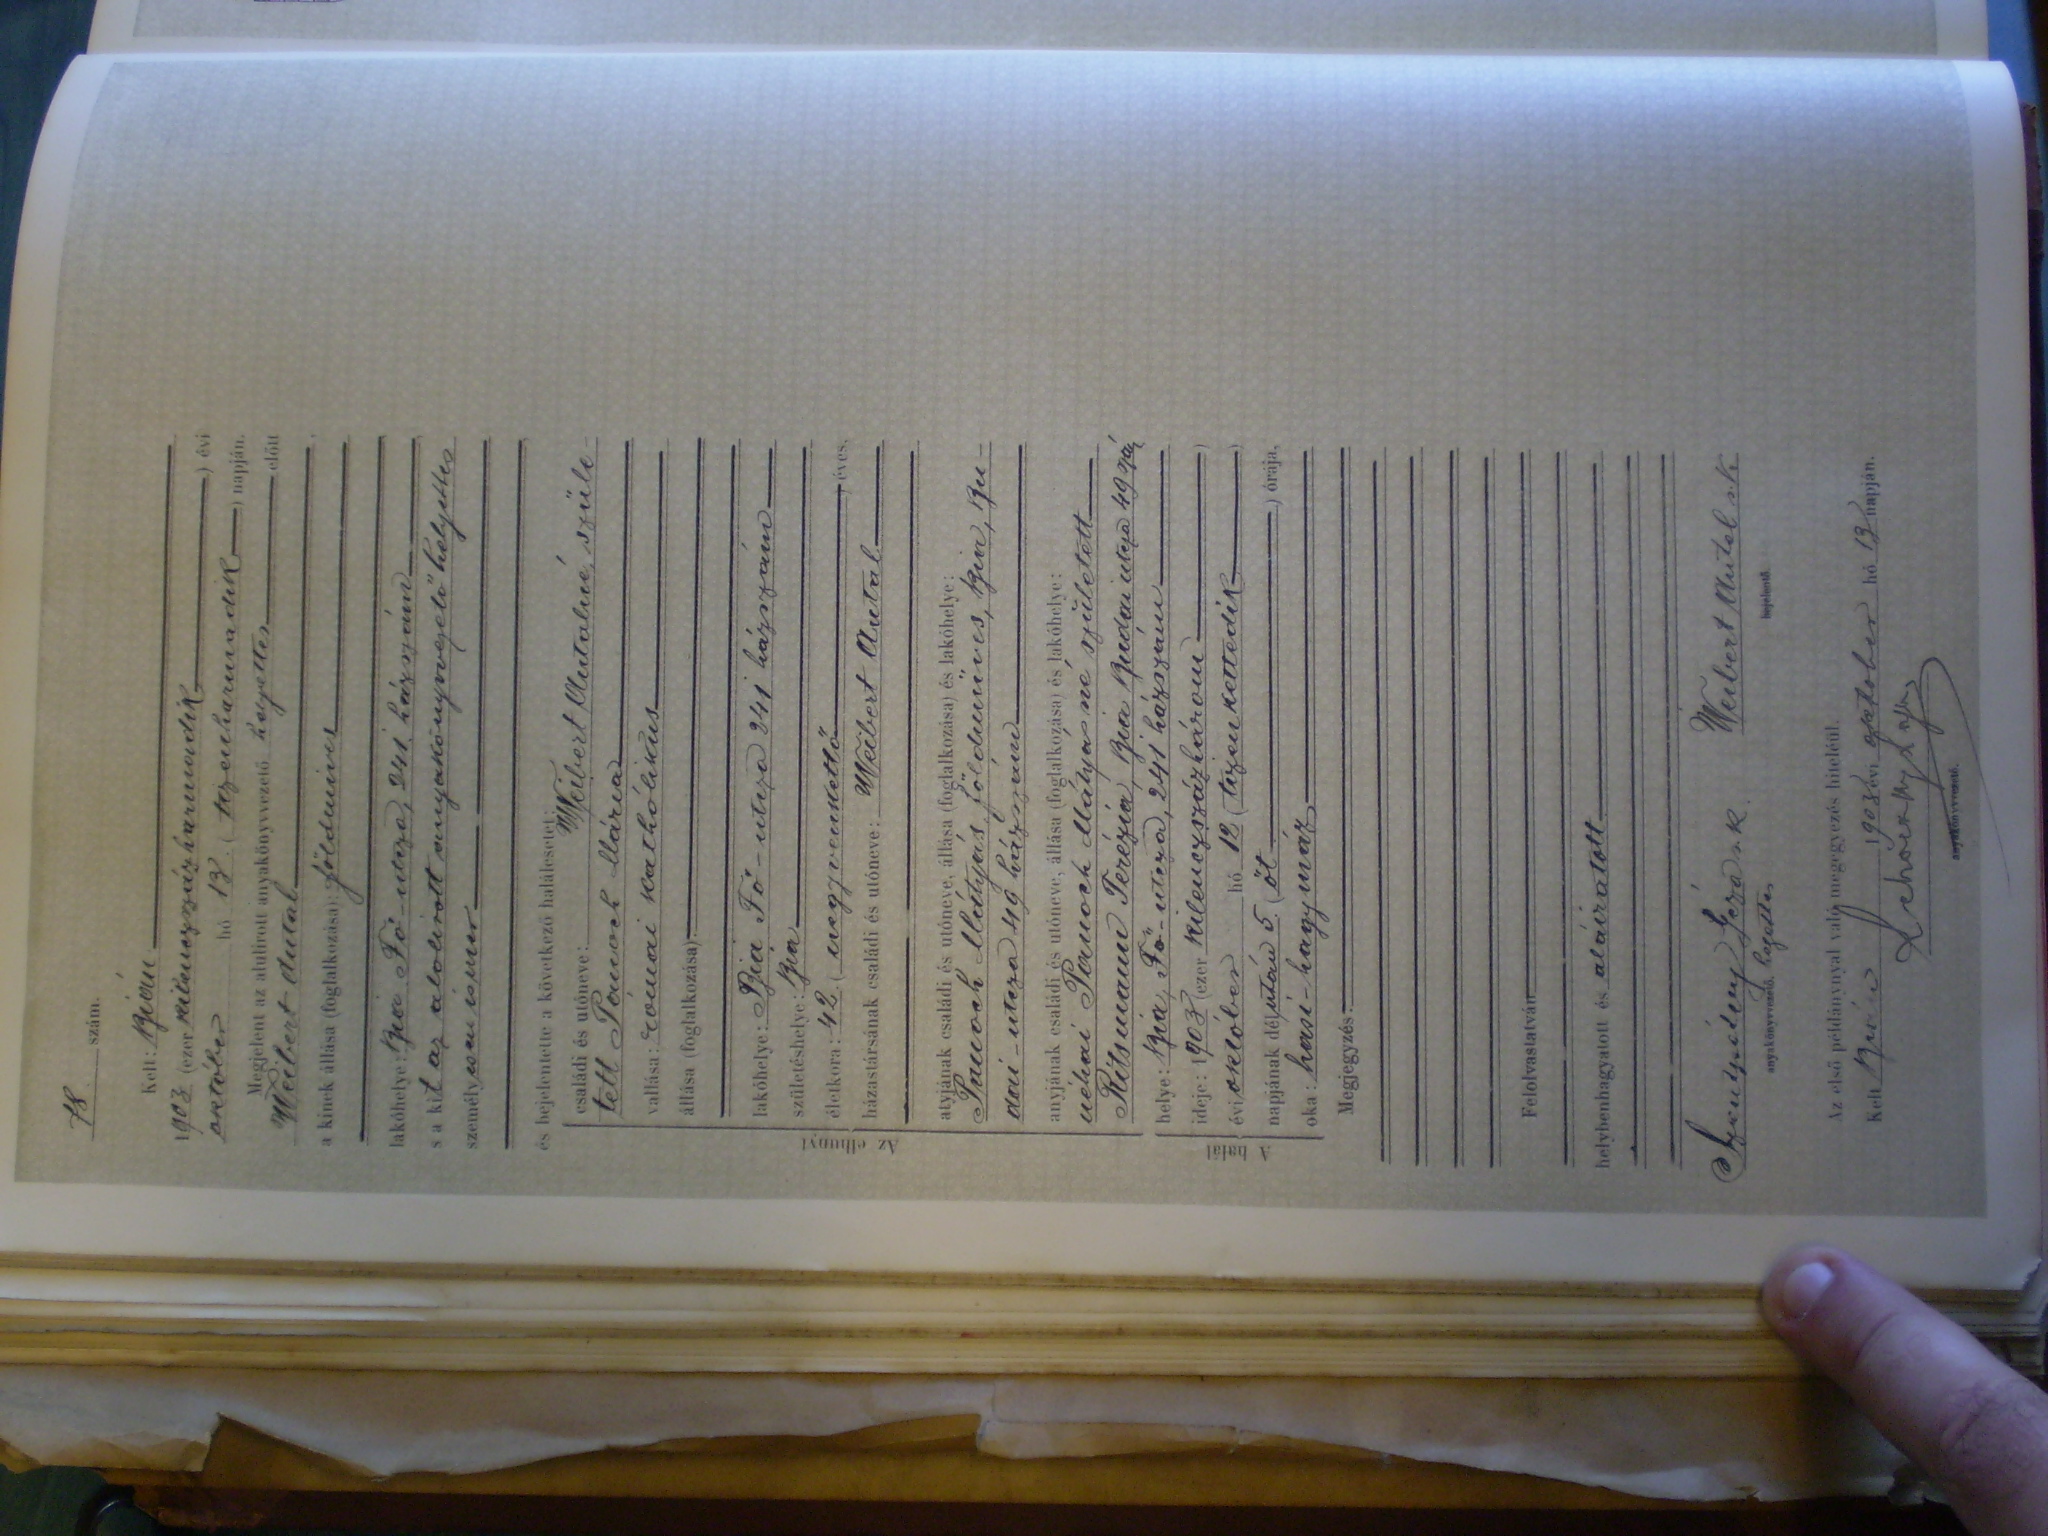 78. szám.
Kelt: Bián
1903. (ezer kilenczszázharmadik) évi
október hó 13. (tizenharmadik) napján.
Megjelent az alulirott anyakönyvvezető helyettes előtt
Weibert Antal
a kinek állása (foglalkozása): földmives
lakóhelye: Bia Fő-utcza, 241. házszám
s a kit az alolirott anyakönyvvezető helyettes
személyesen ismer
és bejelentette a következő halálesetet:
Az elhunyt
családi és utóneve: Weibert Antalné, szüle-
tett Mária
vallása: római katholikus
állása (foglalkozása):
lakóhelye: Bia Fő-utcza 241 házszám
születéshelye: Bia
életkora: 42. (negyvenkettő) éves.
házastársának családi és utóneve: Weibert Antal
atyjának családi és utóneve, állása (foglalkozása) és lakóhelye:
Mátyás földmüves, Bia, Bu-
dai-utcza 49 házszám
anyjának családi és utóneve, állása (foglalkozása) és lakóhelye:
néhai Mátyásné született
Terézia, Bia Budai utcza 49 szá
A halál
helye: Bia, Fő-utcza, 241 házszám
ideje: 1903 (ezer kilenczszázhárom)
évi október hó 12 (tizenkettedik)
napjának délután 5. (öt) órája,
oka: hasi-hagymáz
Megjegyzés:
Felolvastatván
helybenhagyatott és aláiratott
Géza s. k. Weibert Antal sk
anyakönyvvezető, helyettes bejelentő.
Az első példánynyal való megegyezés hiteléül.
Kelt Bián 1903 évi október hó 13 napján.
anyakönyvvezető.